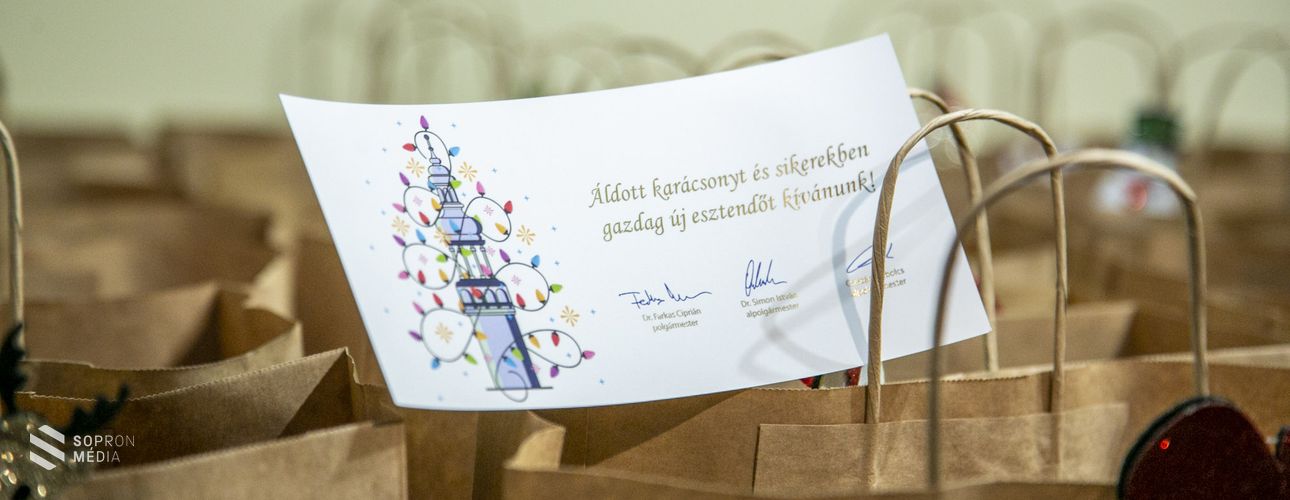 Áldott karácsonyt és sikerekben
gazdag új esztendőt kívánunk!
Dr. Farkas Ciprián
polgármester
Dr. Simon István
alpolgármester
SOPRON
MÉDIA